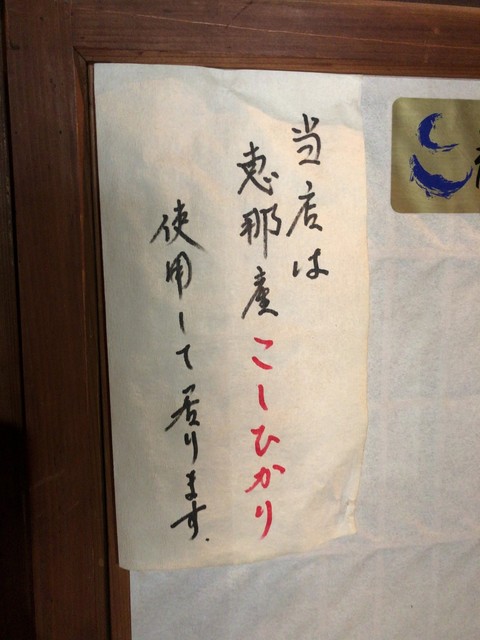 当店は
恵那産こしひかり
使用して居ります.